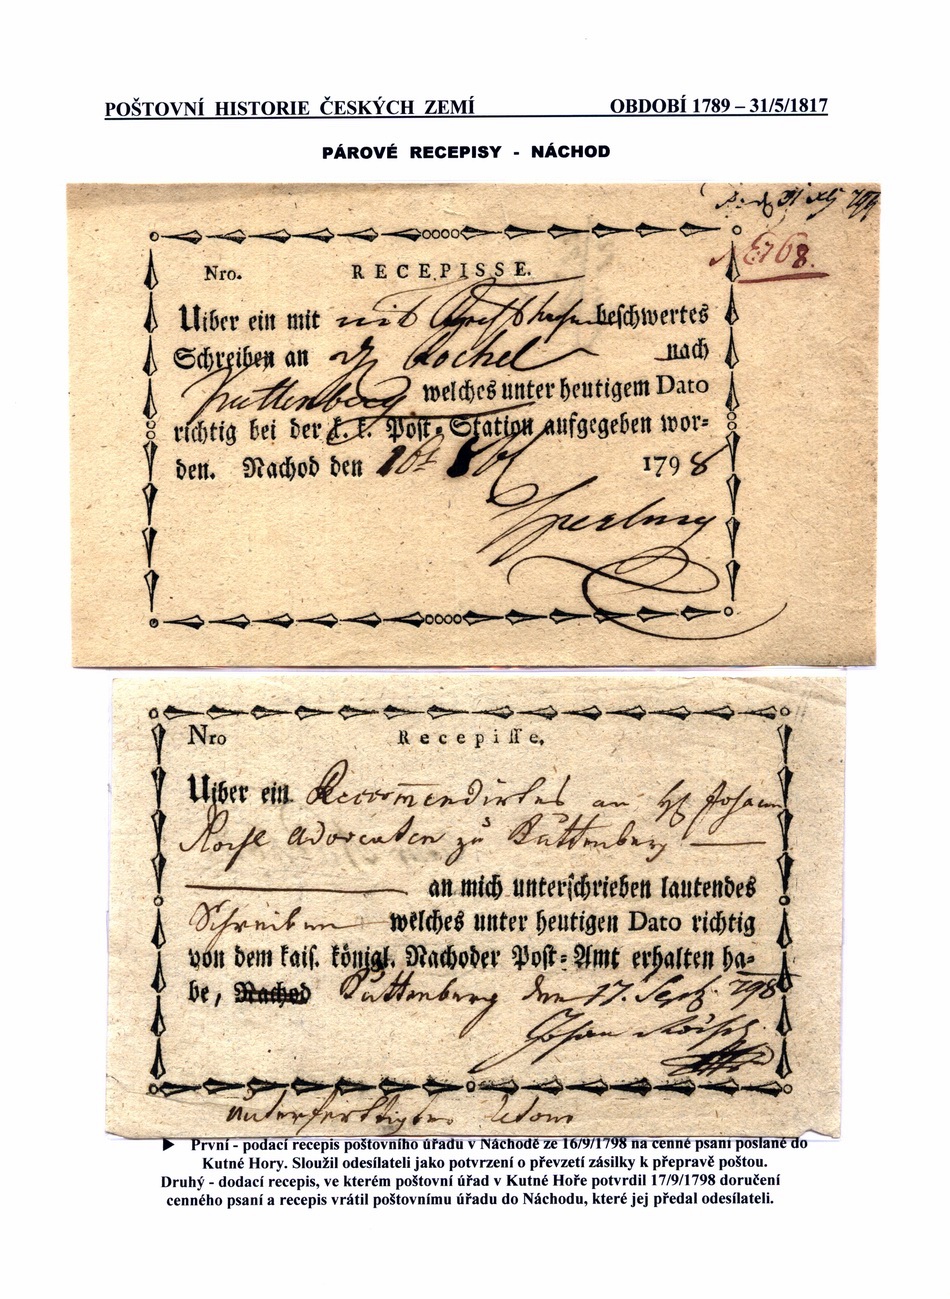 POŠTOVNÍ HISTORIE ČESKÝCH ZEMÍ OBDOBÍ 1789 – 31/5/1817
PÁROVÉ RECEPISY - NÁCHOD
Nro. RECEPISSE.
Uiber ein mit beschwertes
Schreiben an nach
Kuttenberg welches unter heutigem Dato
richtig bei der k. k. Post-Station aufgegeben wor-
den. Nachod den 16t 1798
Nro Recepisse.
Uiber ein Recommendirtes an Johann
Advocaten zu Kuttenberg
an mich unterschrieben lautendes
Schreiben welches unter heutigen Dato richtig
von dem kais. königl. Nachoder Post-Amt erhalten ha-
be, Nachod Kuttenberg den 17. Sept. 798
► První - podací recepis poštovního úřadu v Náchodě ze 16/9/1798 na cenné psaní poslané do
Kutné Hory. Sloužil odesílateli jako potvrzení o převzetí zásilky k přepravě poštou.
Druhý - dodací recepis, ve kterém poštovní úřad v Kutné Hoře potvrdil 17/9/1798 doručení
cenného psaní a recepis vrátil poštovnímu úřadu do Náchodu, které jej předal odesílateli.